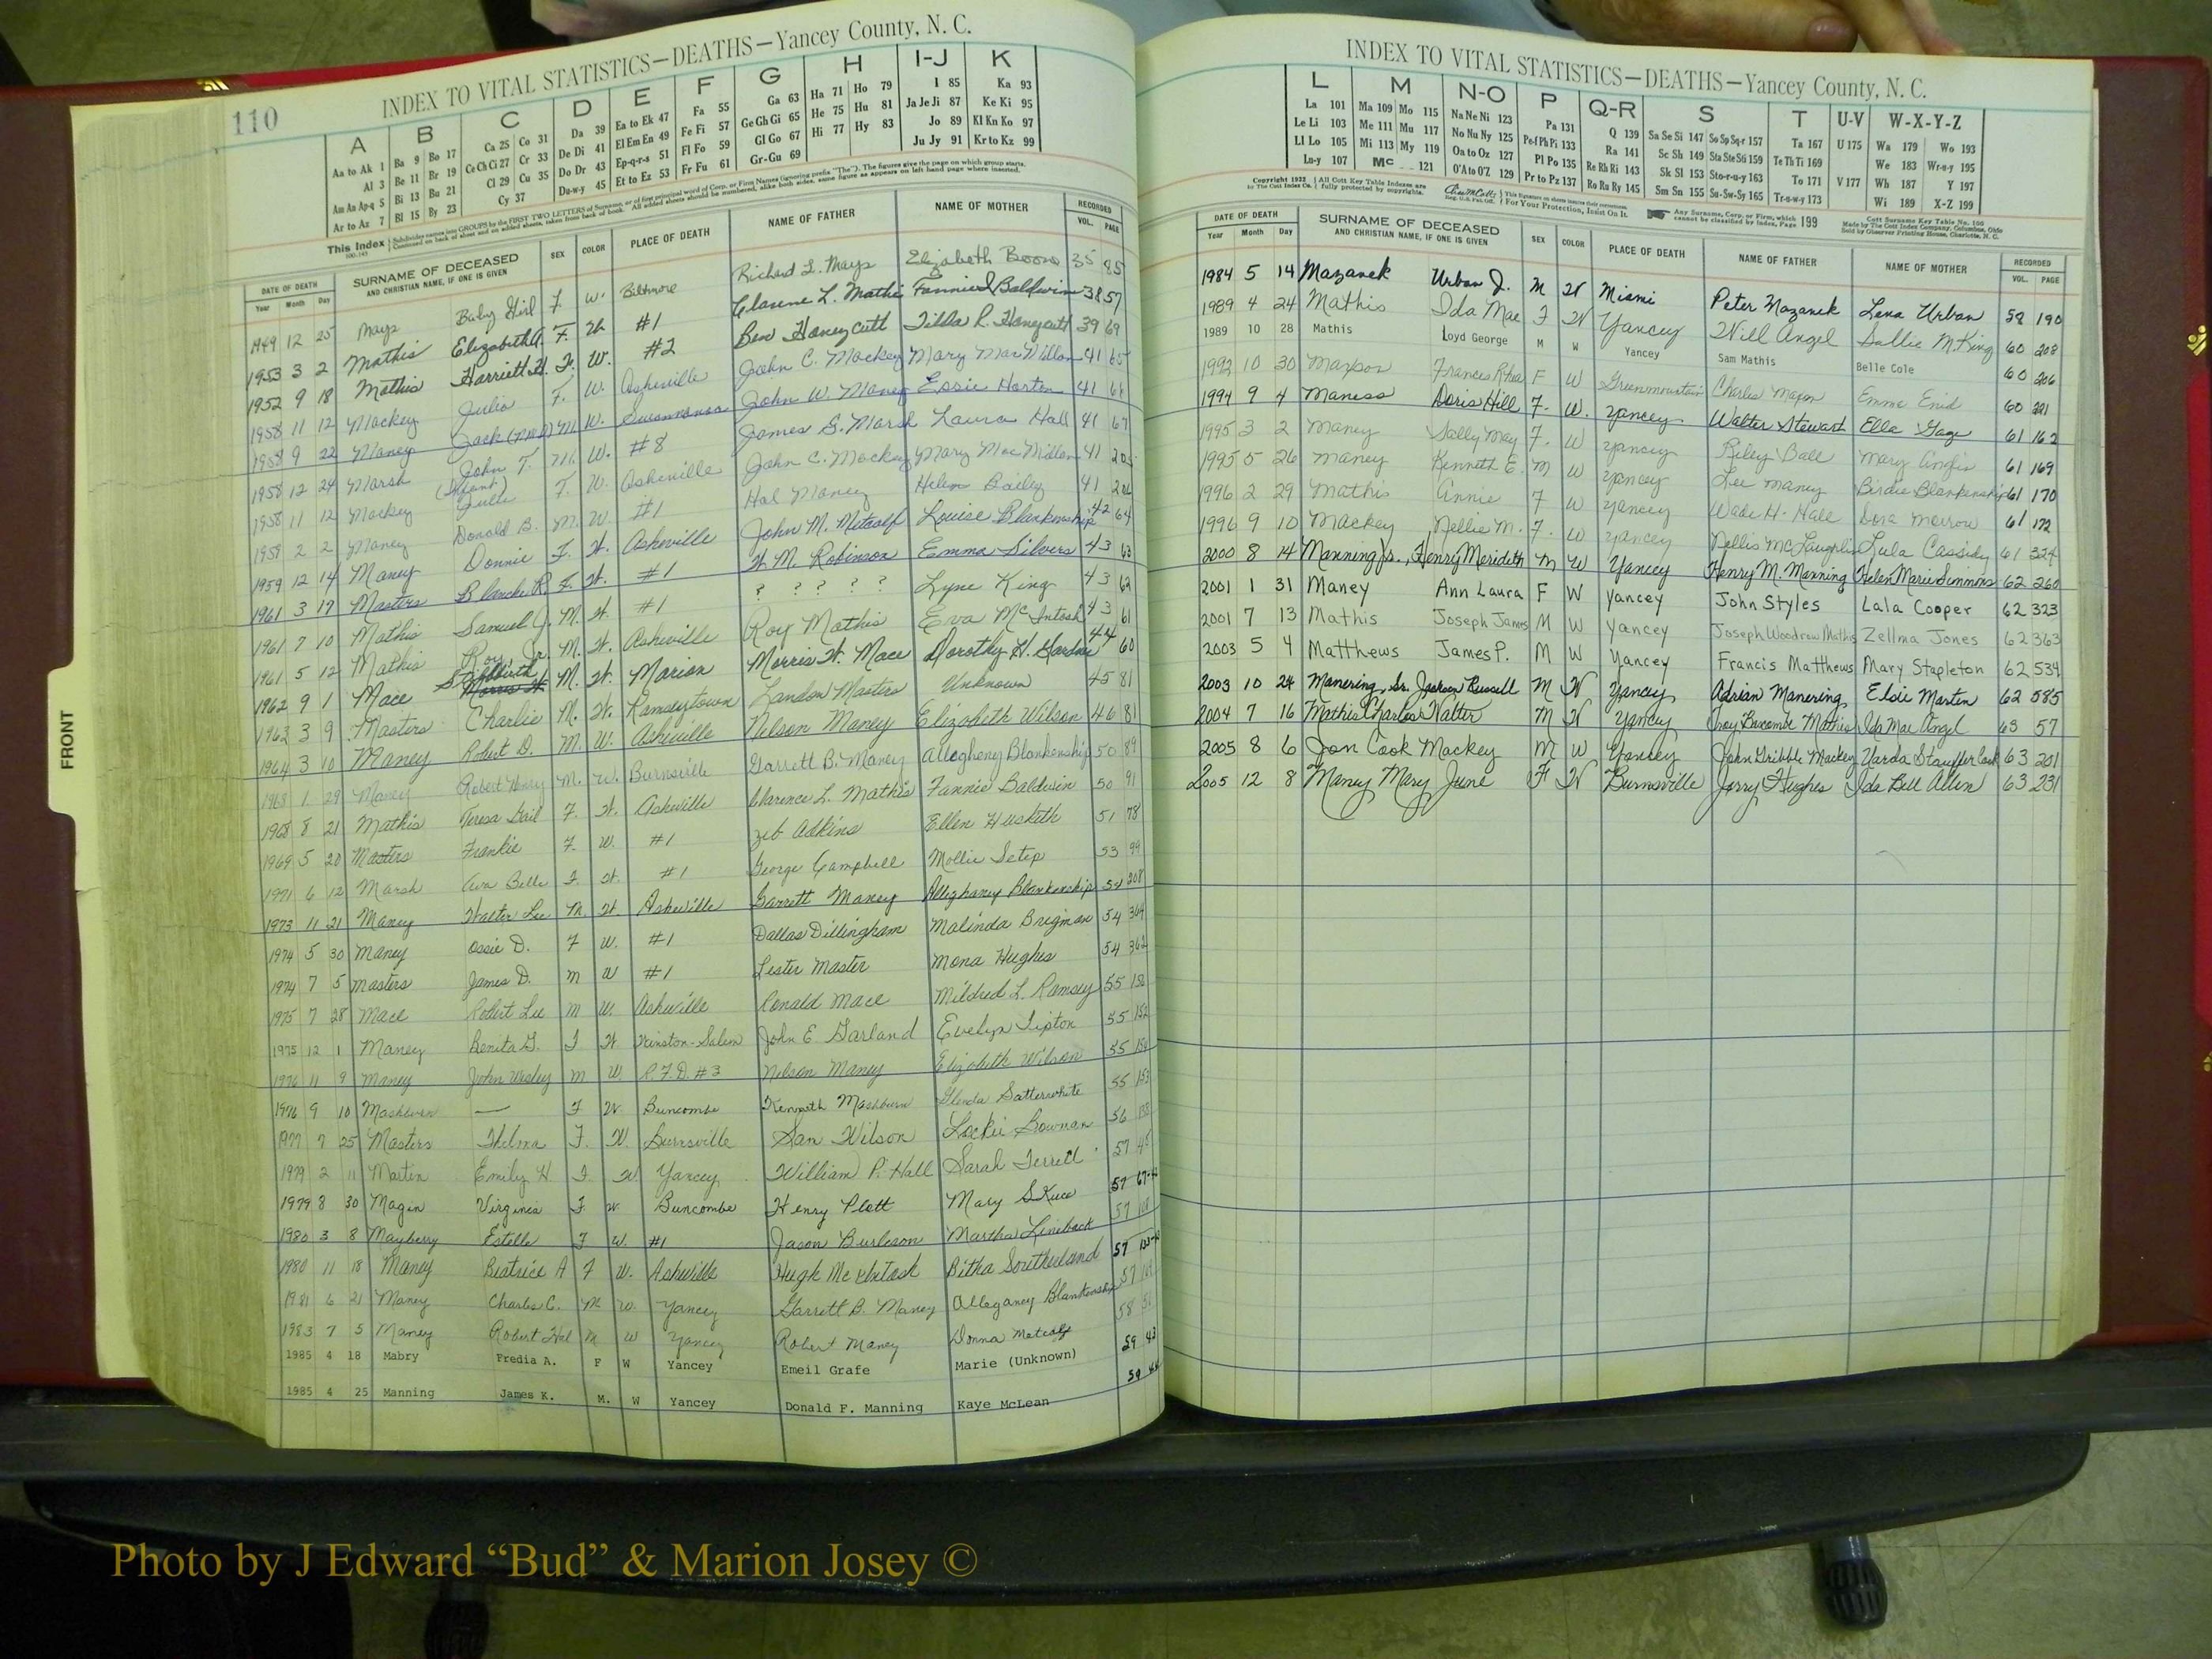 110
INDEX TO VITAL STATISTICS—DEATHS—Yancey County, N. C.
A B C D E F G H I-J K
Aa to Ak 1 Ba 9 Bo 17 Ca 25 Co 31 Da 39 Ea to Ek 47 Fa 55 Ga 63 Ha 71 Ho 79 I 85 Ka 93
Al 3 Be 11 Br 19 Ce Ch Ci 27 Cr 33 De Di 41 El Em En 49 Fe Fi 57 Ge Gh Gi 65 He 75 Hu 81 Ja Je Ji 87 Ke Ki 95
Am An Ap-q 5 Bi 13 Bu 21 Cl 29 Cu 35 Do Dr 43 Ep-q-r-s 51 Fl Fo 59 Gl Go 67 Hi 77 Hy 83 Jo 89 Kl Kn Ko 97
Ar to Az 7 Bl 15 By 23 Cy 37 Du-w-y 45 Et to Ez 53 Fr Fu 61 Gr-Gu 69 Ju Jy 91 Kr to Kz 99
This Index
DATE OF DEATH SURNAME OF DECEASED SEX COLOR PLACE OF DEATH NAME OF FATHER NAME OF MOTHER RECORDED
Year Month Day AND CHRISTIAN NAME, IF ONE IS GIVEN VOL. PAGE
1949 12 25 Mays Baby Girl F. W. Biltmore Richard L. Mays Elizabeth Boone 35 85
1953 3 2 Mathis Elizabeth A. F. W. #1 Clarence L. Mathis Fannie Baldwin 38 57
1952 9 18 Mathis Harriett H. F. W. #2 Ben Honeycutt Tilda R. Honeycutt 39 69
1958 11 12 Mackey Julia F. W. Asheville John C. Mackey Mary MacMillon 41 65
1958 9 22 Maney Jack M. W. Swannanoa John W. Maney Essie Horton 41 66
1958 12 24 Marsh John T. M. W. #8 James S. Marsh Laura Hall 41 67
1958 11 12 Mackey (Infant) Julie F. W. Asheville John C. Mackey Mary MacMillon 41
1958 2 2 Maney Donald B. M. W. #1 Hal Maney Helen Bailey 42 64
1959 12 14 Maney Donnie F. W. Asheville John M. Metcalf Louise Blankenship 43 63
1961 3 17 Masters Blanche R. F. W. #1 W. M. Robinson Emma Silvers 43 62
1961 7 10 Mathis Samuel J. M. W. #1 ? ? ? ? ? Lyne King 43 61
1961 5 12 Mathis Roy, Jr. M. W. Asheville Roy Mathis Eva McIntosh 44 60
1962 9 1 Mace Stillbirth M. W. Marion Morris W. Mace Dorothy H. 45 81
1963 3 9 Masters Charlie M. W. Ramseytown Landon Masters Unknown 46 81
1964 3 10 Maney Robert D. M. W. Asheville Nelson Maney Elizabeth Wilson 50 89
1968 1 29 Maney Robert Henry M. W. Burnsville Garrett B. Maney Allegheny Blankenship 50 91
1968 8 21 Mathis Teresa Gail F. W. Asheville Clarence L. Mathis Fannie Baldwin 51 78
1969 5 20 Masters Frankie F. W. #1 Zeb Adkins Ellen Husketh 53 99
1971 6 12 Marsh Ava Belle F. W. #1 George Campbell Mollie 54 208
1973 11 21 Maney Walter Lee M. W. Asheville Garrett Maney Alleghaney Blankenship 54 364
1974 5 30 Maney Ossie D. F W. #1 Dallas Dillingham Malinda Brigman 54 362
1974 7 5 Masters James D. M W #1 Lester Master Mona Hughes
1975 7 28 Mace Robert Lee M W. Asheville Ronald Mace Mildred L. Ramsey 55
1975 12 1 Maney Benita G. F W Winston-Salem John E Garland Evelyn Tipton 55 152
1976 11 9 Maney John Wesley M W. R.F.D. #3 Nelson Maney Elizabeth Wilson 55
1976 9 10 Mashburn — F W Buncombe Kenneth Mashburn Glenda Satterwhite 55 153
1977 7 25 Masters Thelma F. W. Burnsville Sam Wilson Lockie Bowman 56
1979 2 11 Martin Emily H F W Yancey William P. Hall Sarah Ferrell 57
1979 8 30 Magin Virginia F W Buncombe Henry Plott Mary S 57
1980 3 8 Mayberry Estelle F W. #1 Jason Burleson Martha Lineback 57
1980 11 18 Maney Beatrice A F W. Asheville Hugh McIntosh Bitha Southerland 57
1981 6 21 Maney Charles C. M W. Yancey Garrett B. Maney Allegany Blankenship 57
1983 7 5 Maney Robert Hal M W Yancey Robert Maney Donna Metcalf 58
1985 4 18 Mabry Fredia A. F W Yancey Emeil Grafe Marie (Unknown) 59 43
1985 4 25 Manning James K. M. W Yancey Donald F. Manning Kaye McLean 59 44
FRONT
INDEX TO VITAL STATISTICS—DEATHS—Yancey County, N. C.
L M N-O P Q-R S T U-V W-X-Y-Z
La 101 Ma 109 Mo 115 Na Ne Ni 123 Pa 131 Q 139 Sa Se Si 147 So Sp Sq-r 157 Ta 167 U 175 Wa 179 Wo 193
Le Li 103 Me 111 Mu 117 No Nu Ny 125 Pe-f Ph Pi 133 Ra 141 Sc Sh 149 Sta Ste Sti 159 Te Th Ti 169 We 183 Wr-e-y 195
Ll Lo 105 Mi 113 My 119 Oa to Oz 127 Pl Po 135 Re Rh Ri 143 Sk Sl 153 Sto-r-u-y 163 To 171 V 177 Wh 187 Y 197
Lu-y 107 Mc 121 O'A to O'Z 129 Pr to Pz 137 Ro Ru Ry 145 Sm Sn 155 Su-Sw-Sy 165 Tr-u-w-y 173 Wi 189 X-Z 199
Copyright 1922 All Cott Key Table Indexes are fully protected by copyrights. For Your Protection, Insist On It. Any Surname, Corp. or Firm, which cannot be classified by Index, Page 199
DATE OF DEATH SURNAME OF DECEASED SEX COLOR PLACE OF DEATH NAME OF FATHER NAME OF MOTHER RECORDED
Year Month Day AND CHRISTIAN NAME, IF ONE IS GIVEN VOL. PAGE
1984 5 14 Mazanek Urban J. M W Miami Peter Mazanek Lena Urban 58 190
1989 4 24 Mathis Ida Mae F W Yancey Will Angel Sallie McKing 60 208
1989 10 28 Mathis Loyd George M W Yancey Sam Mathis Belle Cole 60 206
1992 10 30 Maxson Frances F W Greenmountain Charles Emma Enid 60 221
1994 9 4 Maness Doris Hill F. W. Yancey Walter Stewart Ella Gage 61 162
1995 3 2 Maney Sally May F. W Yancey Riley Ball Mary Anglin 61 169
1995 5 26 Maney Kenneth E. M W Yancey Lee Maney Birdie Blankenship 61 170
1996 2 29 Mathis Annie F W Yancey Wade H. Hall Dora Morrow 61 172
1996 9 10 Mackey Nellie M. F. W Yancey McLaughlin Lula Cassidy 61 324
2000 8 14 Manning Jr., Henry Meridith M W Yancey Henry M. Manning Helen Marie Simmons 62 260
2001 1 31 Maney Ann Laura F W Yancey John Styles Lala Cooper 62 323
2001 7 13 Mathis Joseph James M W Yancey Joseph Woodrow Mathis Zellma Jones 62 363
2003 5 4 Matthews James P. M W Yancey Francis Matthews Mary Stapleton 62 534
2003 10 24 Manering, Sr. Jackson Russell M W Yancey Adrian Manering Elsie Martin 62 585
2004 7 16 Mathis Charles Walter M W Yancey Troy Buncombe Mathis Ida Mae Angel 63 57
2005 8 6 Jon Cook Mackey M W Yancey John Gribble Mackey Varda Stauffer Cook 63 201
2005 12 8 Maney Mary June F W Burnsville Jerry Hughes Ida Bell Allen 63 231
Photo by J Edward “Bud” & Marion Josey ©